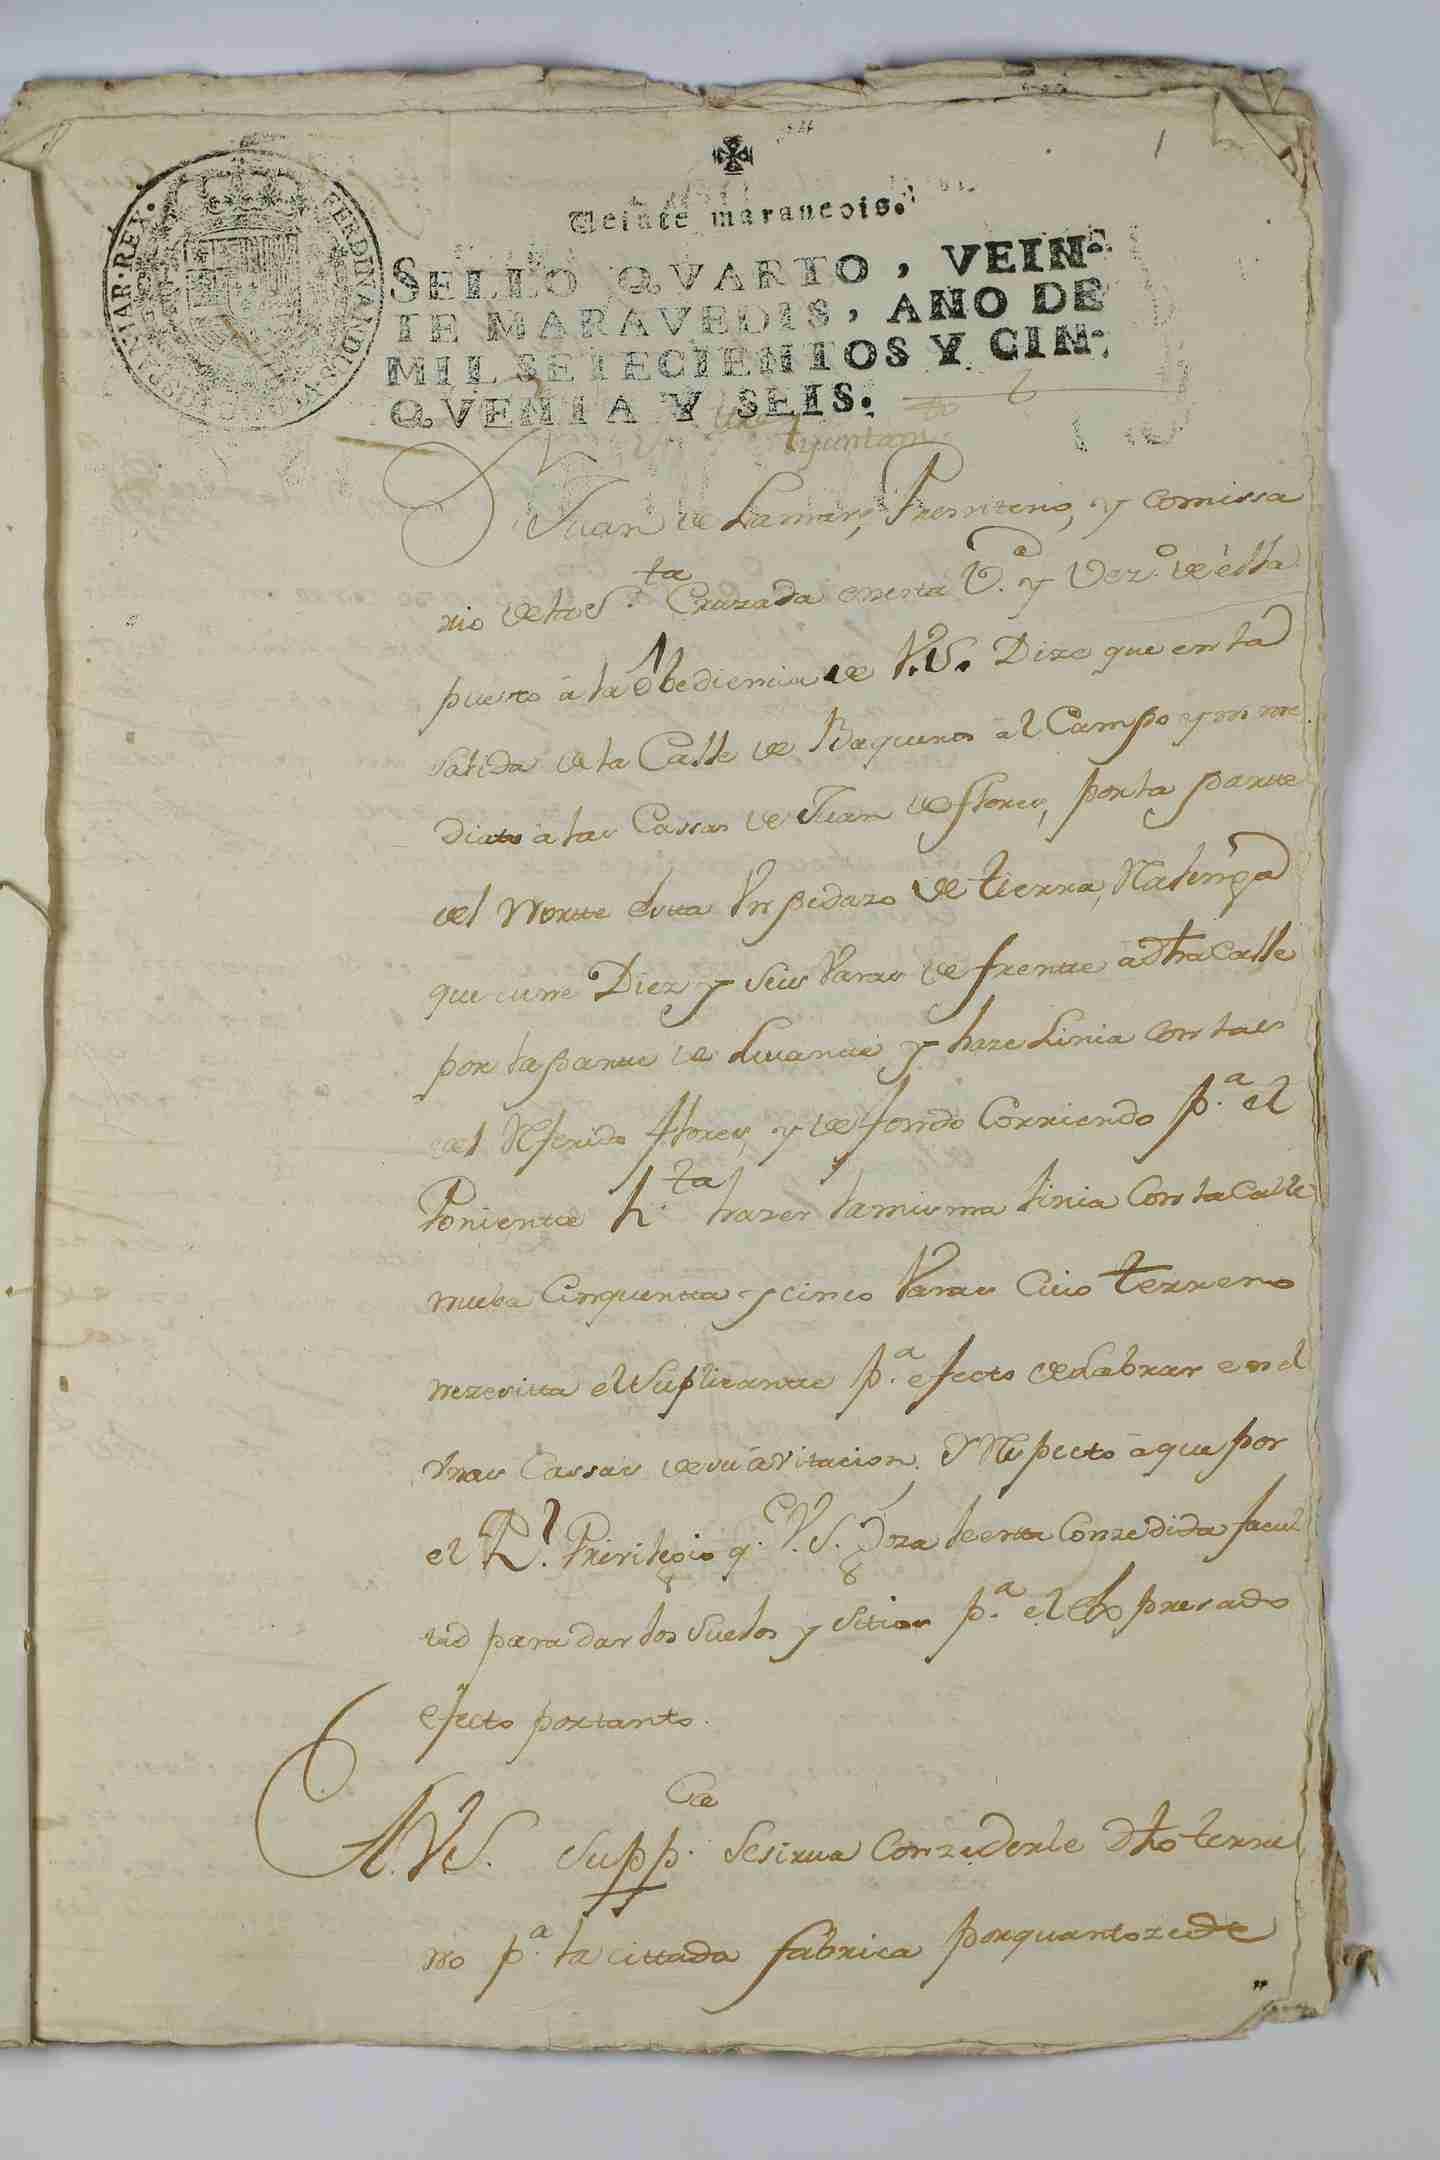 1
Veinte maravedis.
SELLO QVARTO, VEIN-
TE MARAVEDIS, AÑO DE
MIL SETECIENTOS Y CIN-
QVENTA Y SEIS.
FERDINANDUS VI HISPANIAR. REX.
Juan de Lamar, Presvitero, y comissa
rio de la S.ta Cruzada en esta V.a y Vez.o de èlla
puesto à la obediencia de V.S. Dize que en la
salida de la Calle de Baqueros àl Campo ynme
diatto à las Cassas de Juan de flores, por la partte
del Nortte esta Vn pedazo de tierra Realenga
que tiene Diez y seis Varas de frentte à dha Calle
por la partte de Levantte y haze Linia con las
del Referido flores, y de fondo Corriendo p.a el
Ponientte h.ta hazer la misma linia Con la Calle
nueba Cinquentta y cinco Varas Cuio terreno
nezesitta el Suplicantte p.a efecto de Labrar en el
Vnas Cassas de su àvitacion. Y Respecto à que por
el R.l Privilegio q. V.S. Goza le esta Conzedida facul
tad para dar los suelos y sitios p.a el Expresado
efecto por tanto.
A.V.S. Supp.ca se sirva Conzederle dho terre
no p.a la cittada fabrica por quanto zede